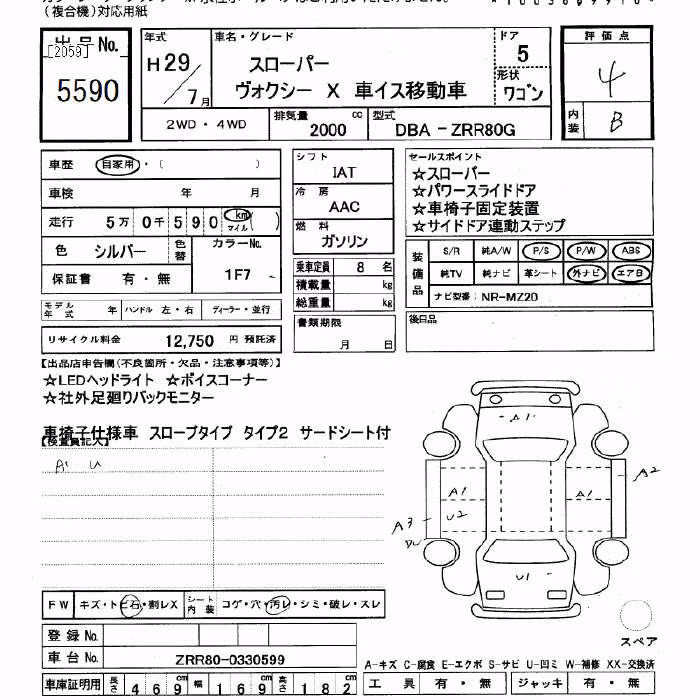 (複合機)対応用紙
出品No.
[2059]
5590
年式
H29/7月
車名・グレード
スローパー
ヴォクシー X 車イス移動車
ドア
5
形状
ワゴン
評価点
4
内装
B
2WD・4WD
排気量
2000 cc
型式
DBA-ZRR80G
車歴 自家用・( )
車検 年 月
走行 5万0千590 km マイル ( )
色 シルバー 色替 カラーNo. 1F7
保証書 有・無
モデル年式 年 ハンドル 左・右 ディーラー・並行
リサイクル料金 12,750 円 預託済
シフト
IAT
冷房
AAC
燃料
ガソリン
乗車定員 8 名
積載量 kg
総重量 kg
書類期限
月 日
セールスポイント
☆スローパー
☆パワースライドドア
☆車椅子固定装置
☆サイドドア連動ステップ
装備品
S/R 純A/W P/S P/W ABS
純TV 純ナビ 革シート 外ナビ エアB
ナビ型番: NR-MZ20
後日品
【出品店申告欄(不良箇所・欠品・注意事項等)】
☆LEDヘッドライト ☆ボイスコーナー
☆社外足廻りバックモニター
車椅子仕様車 スロープタイプ タイプ2 サードシート付
【検査員記入】
A' U
A1
A1
A1
A2
U2
A3
U1
スペア
FW キズ・トビ石・割レX シート内装 コゲ・穴・汚レ・シミ・破レ・スレ
登録No.
車台No. ZRR80-0330599
車庫証明用 長さ 469cm 幅 169cm 高さ 182cm
A-キズ C-腐食 E-エクボ S-サビ U-凹ミ W-補修 XX-交換済
工具 有・無 ジャッキ 有・無